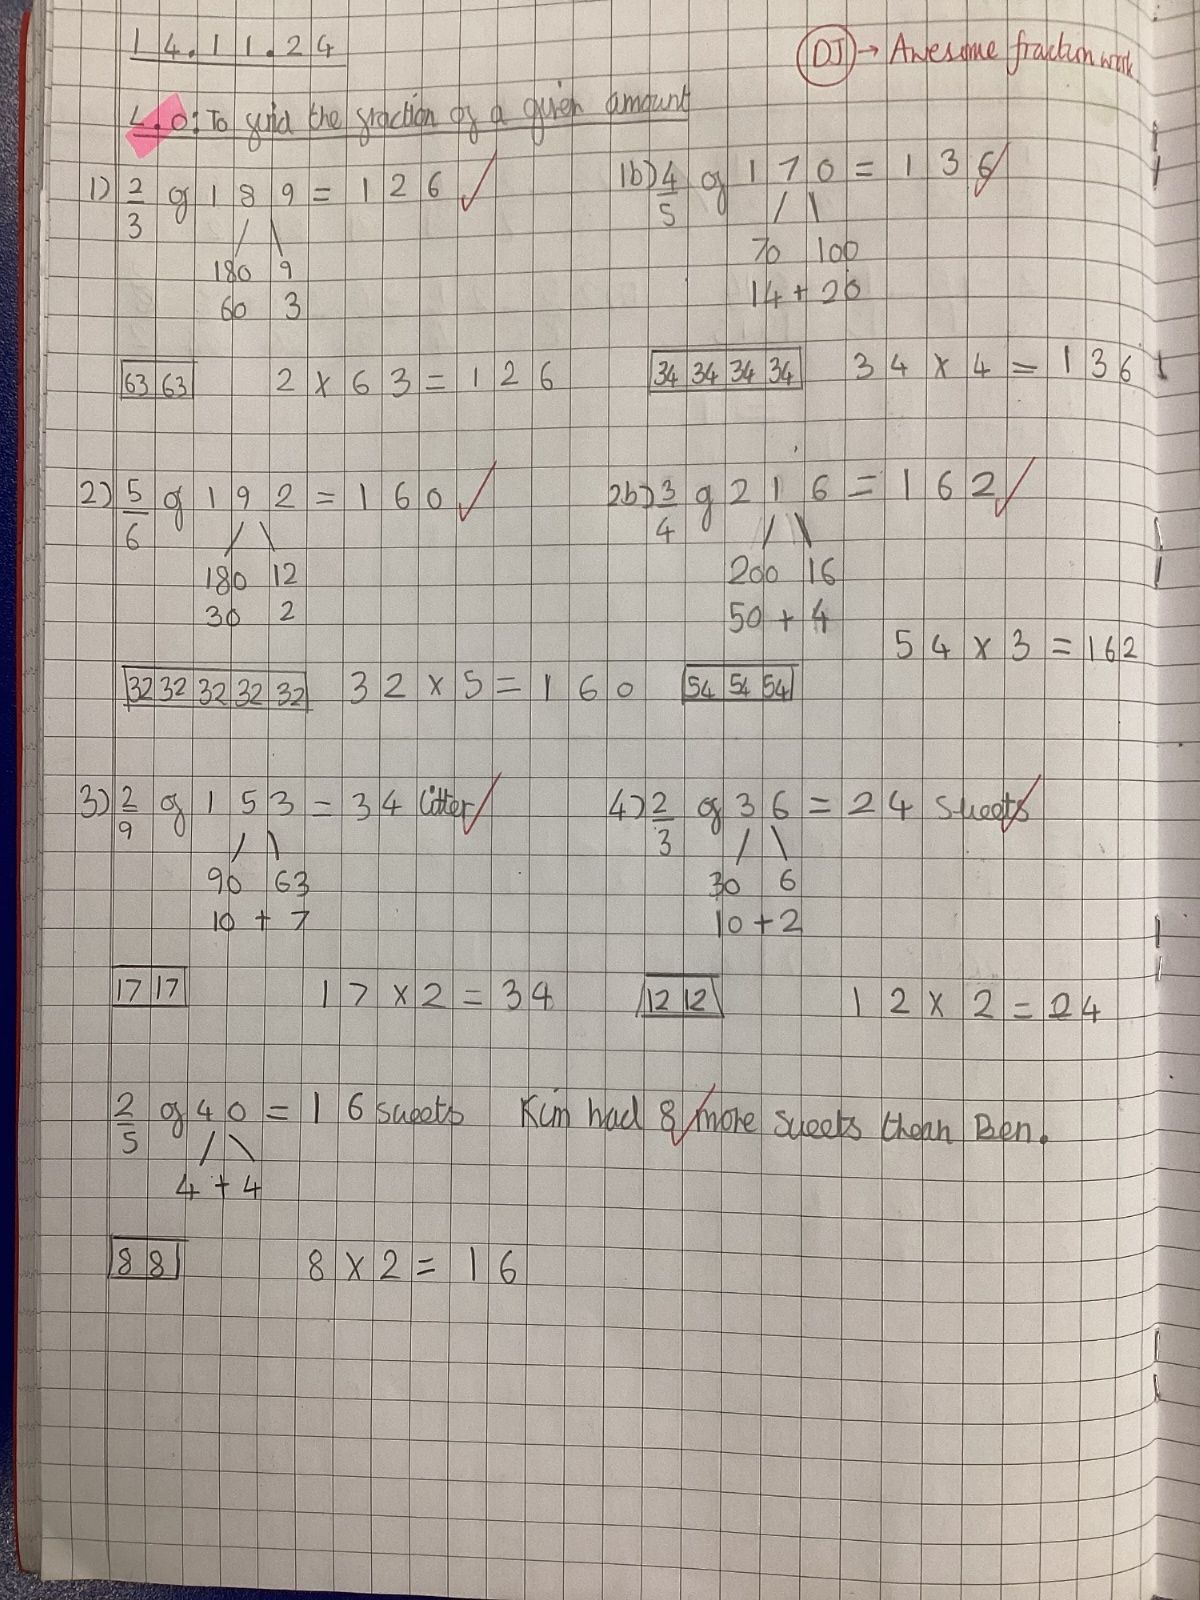 14.11.24
DJ → Awesome fraction work
L.O: To find the fraction of a given amount
1) 2/3 of 189 = 126 ✓
180 9
60 3
63 63 2 x 63 = 126
1b) 4/5 of 170 = 136 ✓
70 100
14 + 20
34 34 34 34 34 x 4 = 136
2) 5/6 of 192 = 160 ✓
180 12
30 2
32 32 32 32 32 32 x 5 = 160
2b) 3/4 of 216 = 162 ✓
200 16
50 + 4
54 x 3 = 162
54 54 54
3) 2/9 of 153 = 34 litter ✓
90 63
10 + 7
17 17 17 x 2 = 34
4) 2/3 of 36 = 24 sweets ✓
30 6
10 + 2
12 12 12 x 2 = 24
2/5 of 40 = 16 sweets Kim had 8 ✓ more sweets than Ben.
4 + 4
8 8 8 x 2 = 16